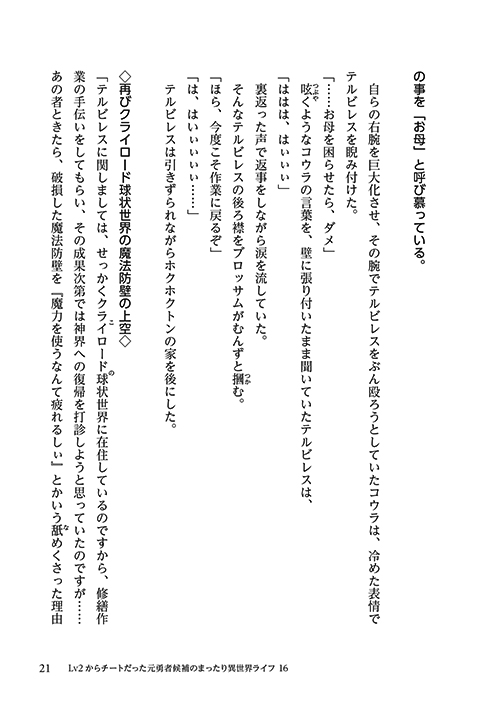 の事を「お母」と呼び慕っている。
自らの右腕を巨大化させ、その腕でテルビレスをぶん殴ろうとしていたコウラは、冷めた表情で
テルビレスを睨み付けた。
「……お母を困らせたら、ダメ」
呟くようなコウラの言葉を、壁に張り付いたまま聞いていたテルビレスは、
「ははは、はぃぃぃ」
裏返った声で返事をしながら涙を流していた。
そんなテルビレスの後ろ襟をブロッサムがむんずと摑む。
「ほら、今度こそ作業に戻るぞ」
「は、はいぃぃぃぃ……」
テルビレスは引きずられながらホクホクトンの家を後にした。
◇再びクライロード球状世界の魔法防壁の上空◇
「テルビレスに関しましては、せっかくクライロード球状世界に在住しているのですから、修繕作
業の手伝いをしてもらい、その成果次第では神界への復帰を打診しようと思っていたのですが……
あの者ときたら、破損した魔法防壁を『魔力を使うなんて疲れるしぃ』とかいう舐めくさった理由
21 Lv2からチートだった元勇者候補のまったり異世界ライフ 16